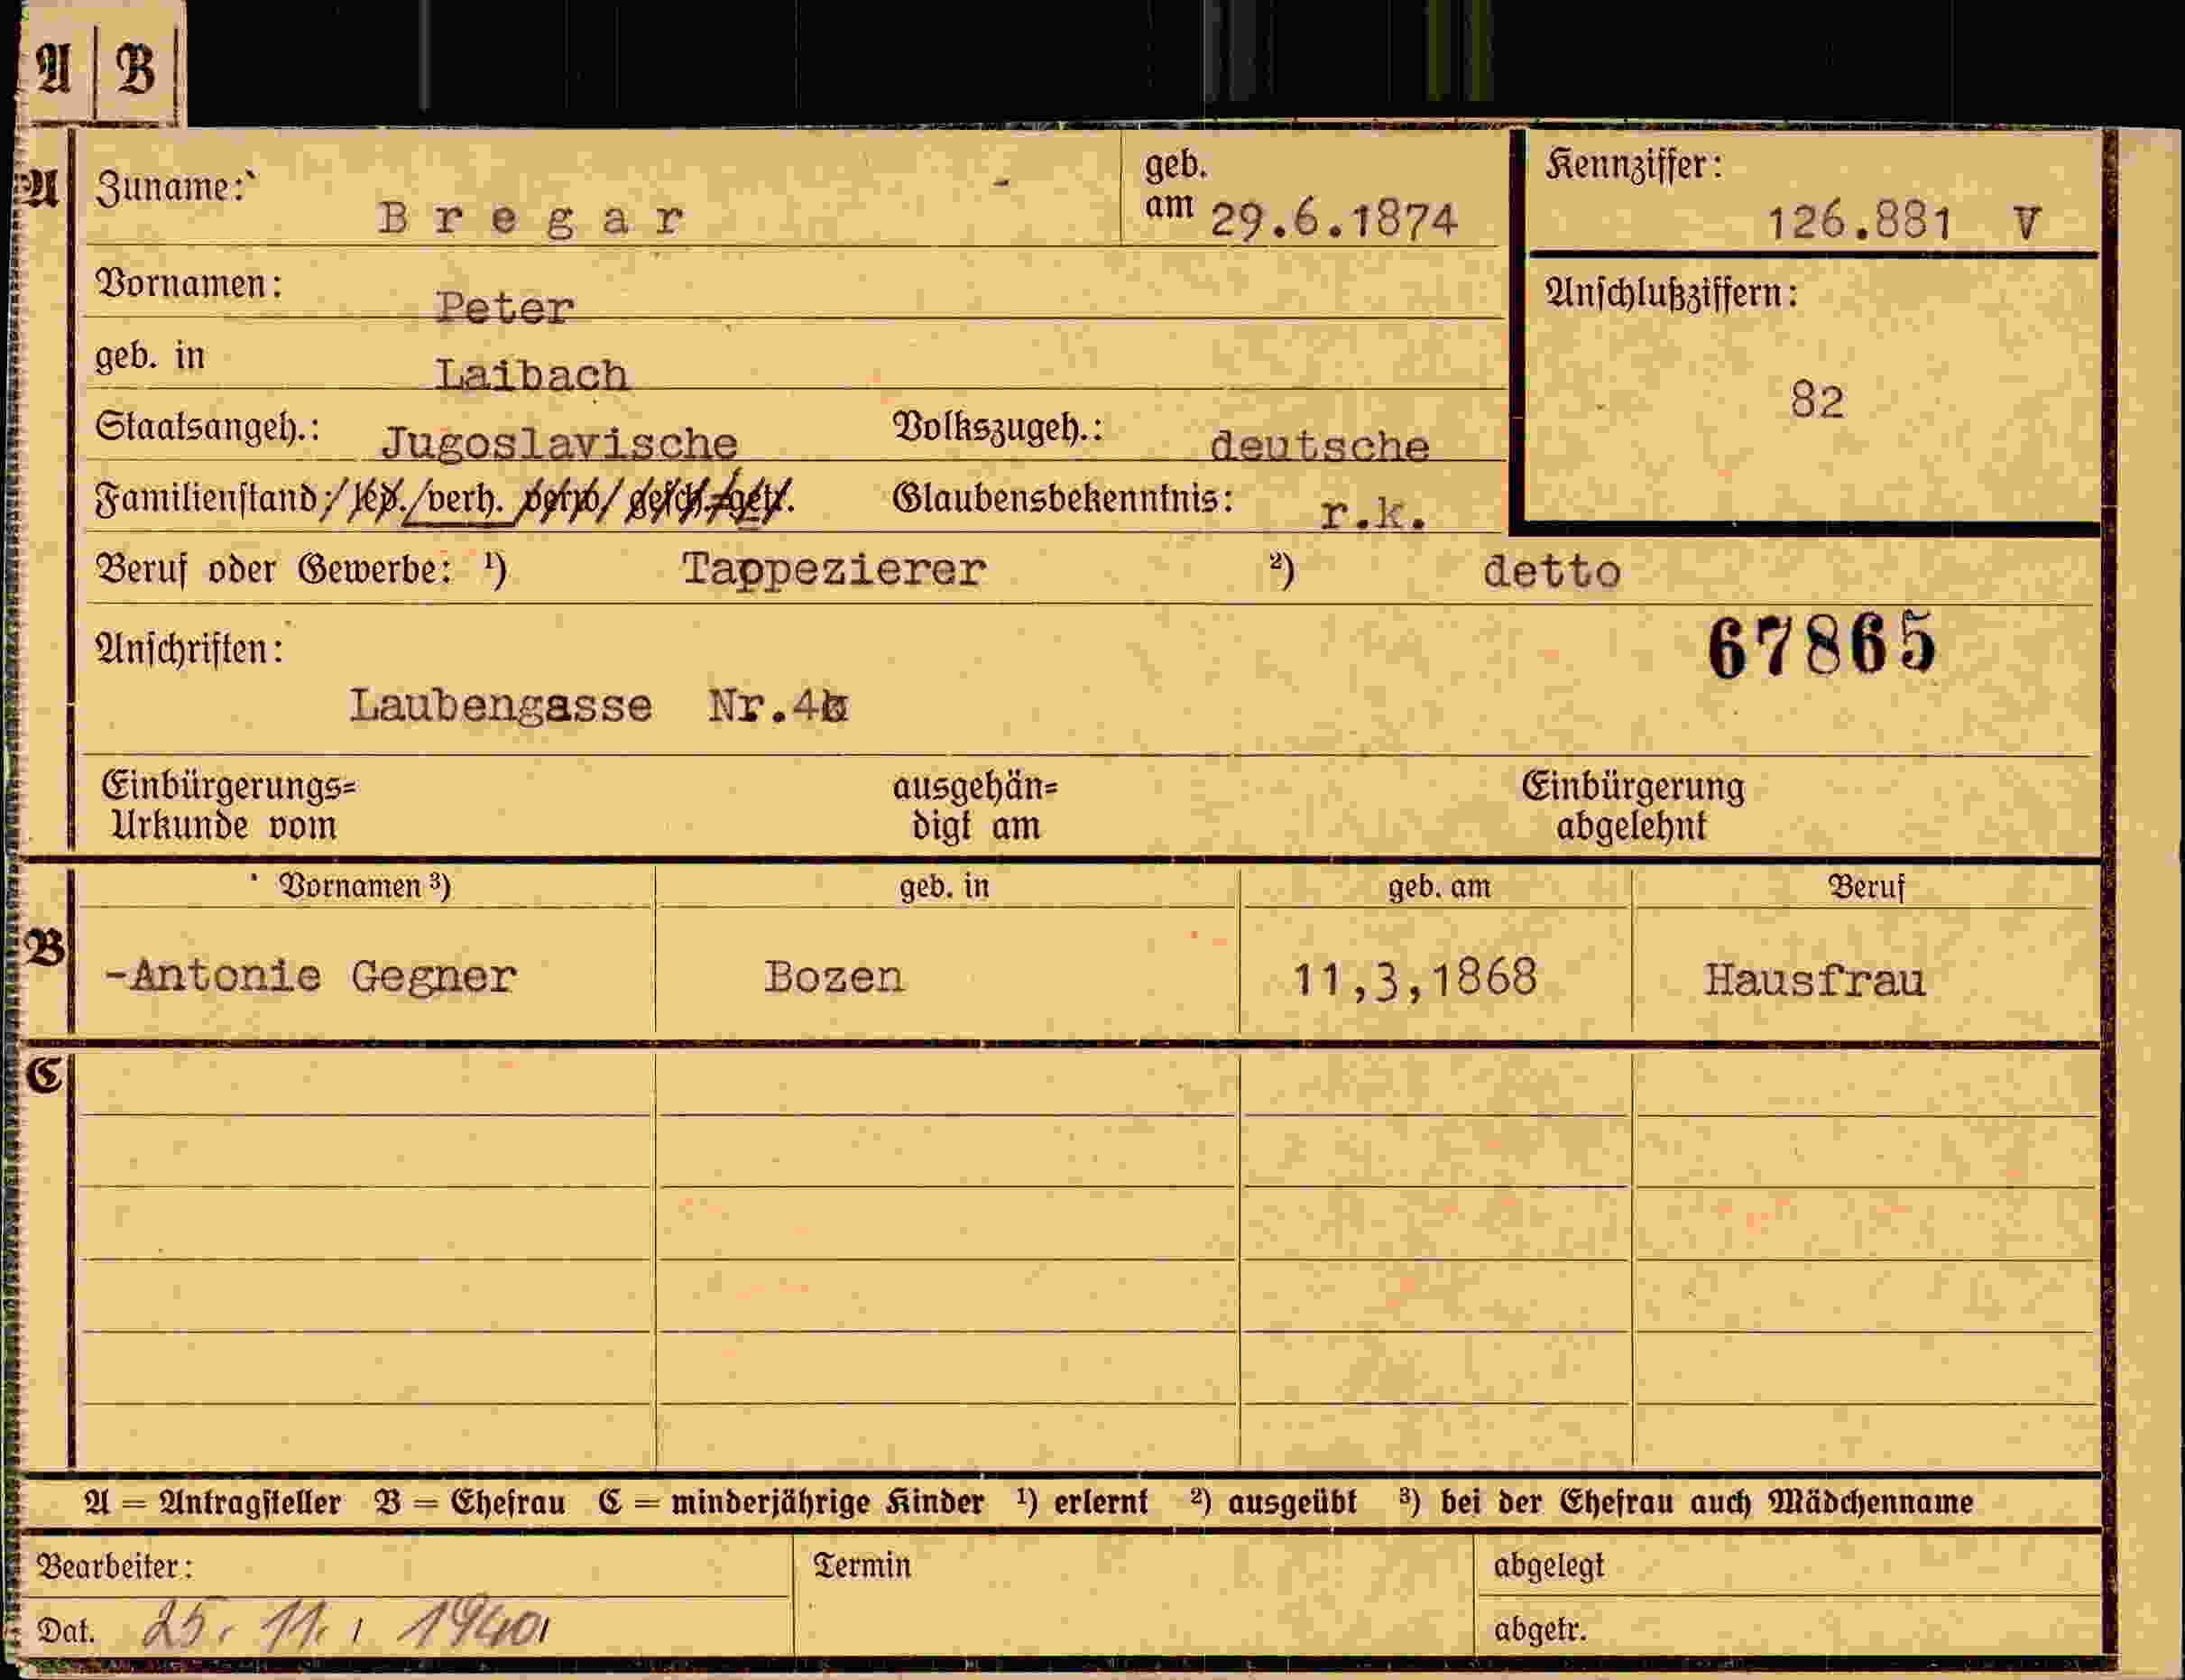 A B
A Zuname: Bregar geb. am 29.6.1874
Kennziffer: 126.881 V
Vornamen: Peter
Anschlußziffern: 82
geb. in Laibach
Staatsangeh.: Jugoslavische Volkszugeh.: deutsche
Familienstand: led./verh. verw/ gesch. get. Glaubensbekenntnis: r.k.
Beruf oder Gewerbe: ¹) Tappezierer ²) detto
67865
Anschriften:
Laubengasse Nr.
Einbürgerungs= ausgehän= Einbürgerung
Urkunde vom digt am abgelehnt
Vornamen ³) geb. in geb. am Beruf
B -Antonie Gegner Bozen 11,3,1868 Hausfrau
C
A = Antragsteller B = Ehefrau C = minderjährige Kinder ¹) erlernt ²) ausgeübt ³) bei der Ehefrau auch Mädchenname
Bearbeiter: Termin abgelegt
Dat. 25. 11. 1940 abgetr.